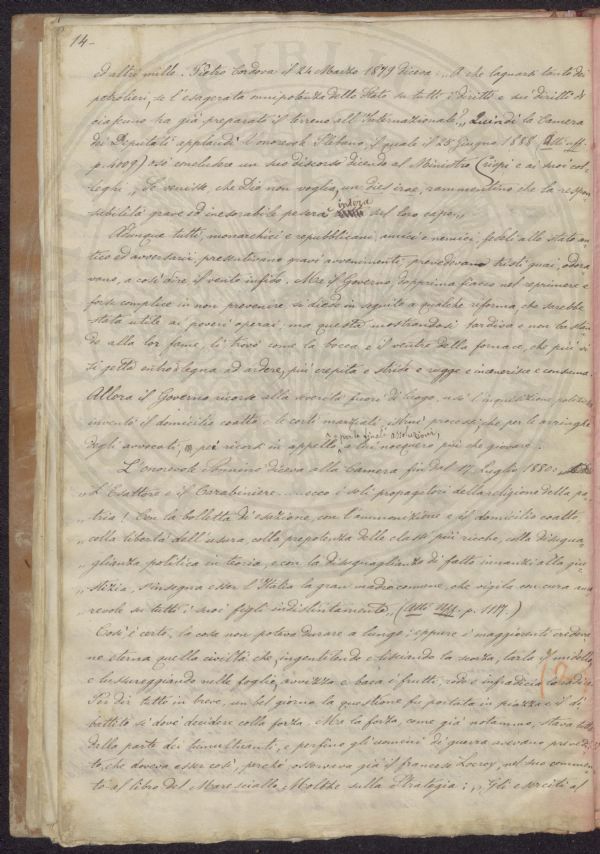 14-
ed altri mille. Pietro Cordova il 24 Marzo 1879 diceva: „A che lagnarsi tanto dei
petrolieri, se l'esagerata onnipotenza dello Stato su tutti i diritti e sui diritti di
ciascuno ha già preparato il terreno all'Internazionale?„ Quindi la Camera
dei Deputati applaudì l'onorevole Plebano, il quale il 28 Giugno 1888 (Atti uff.
p. 4009) così concludeva un suo discorso dicendo al Ministro Crispi e ai suoi col-
leghi: „Se venisse, che Dio non voglia, un dies irae, rammentino che la respon-
sabilità grave ed inesorabile peserà intera sul loro capo„
Adunque tutti, monarchici e repubblicani, amici e nemici, fedeli allo stato an-
tico ed avversarii, presentivano gravi avvenimenti, prevedevano tristi guai, odora-
vano, a così dire il vento infido. Ma il Governo, dapprima fiacco nel reprimere e
forse complice in non prevenire si diede in seguito a qualche riforma, che sarebbe
stata utile ai poveri operai, ma questa mostrandosi tardiva e non bastan-
do alla lor fame, li trovò come la bocca e il ventre della fornace, che più vi
si getta entro legna ad ardere, più crepita e stride e rugge e incenerisce e consuma.
Allora il Governo ricorse alla severità fuori di luogo, usò l'inquisizione politica
inventò il domicilio coatto e le corti marziali, istruì processi, che per le arringhe
degli avvocati, pei ricorsi in appello e per le finali assoluzioni, a lui nocquero più che giovare.
L'onorevole Sonnino diceva alla Camera fin dal 17 Luglio 1880:
„L'Esattore e il Carabiniere ... ecco i soli propagatori della religione della pa-
„tria! Con la bolletta di esazione, con l'ammonizione e il domicilio coatto,
„colla libertà dell'usura, colla prepotenza delle classi più ricche, colla disegua-
„glianza politica in teoria, e con la diseguaglianza di fatto innanzi alla giu-
„stizia, s'insegna esser l'Italia la gran madre comune, che vigila con cura amo-
revole su tutti i suoi figli indistintamente„ (Atti Uff. p. 1117.)
Così è certo, la cosa non poteva durare a lungo; eppure i maggiorenti credeva-
no eterna quella civiltà che, ingentilendo e lisciando la scorza, tarla il midollo,
e lussureggiando nelle foglie, avvizza e baca i frutti, rode e infradicia la radice.
Per dir tutto in breve, un bel giorno la questione fu portata in piazza e il di-
battito si dové decidere colla forza. Ma la forza, come già notammo, stava tutta
dalla parte dei tumultuanti, e perfino gli uomini di guerra avevano prevedu-
to, che doveva esser così, perché osservava già il francese Locroy, nel suo commen-
to al libro del Maresciallo Moltke sulla Strategia: „Gli eserciti al